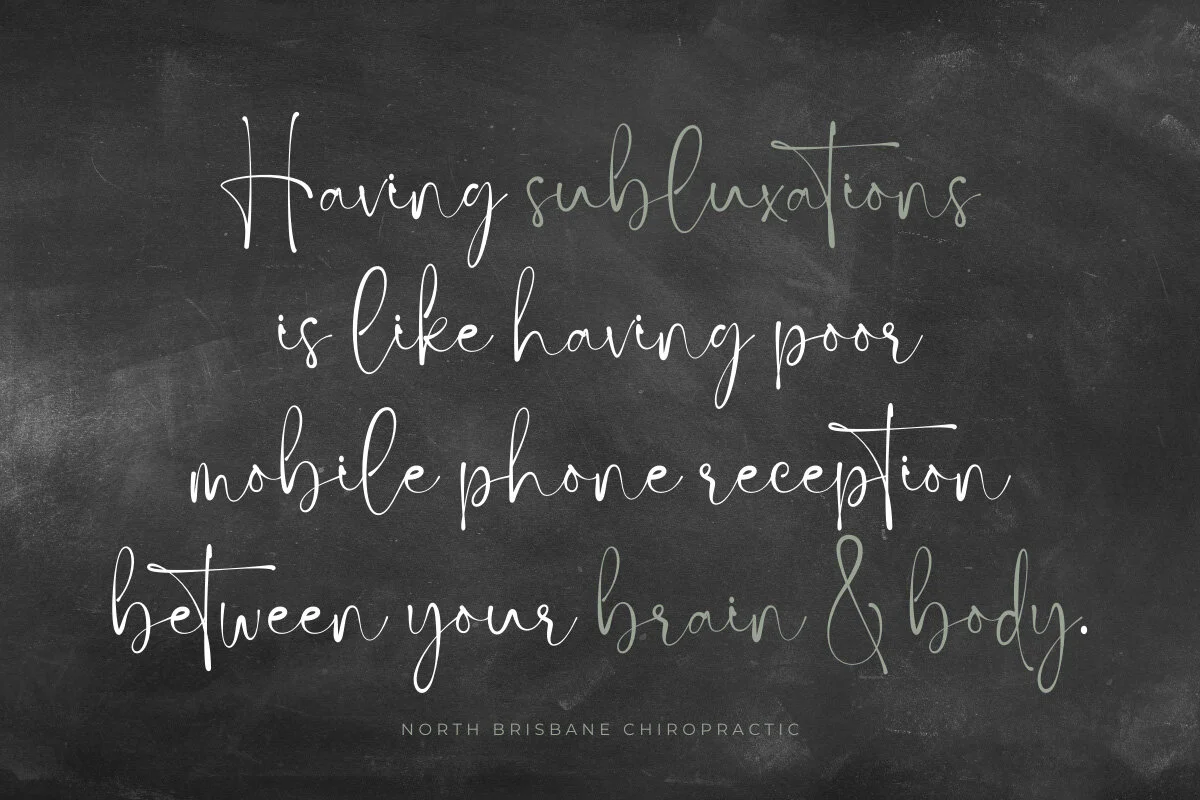 Having subluxations
is like having poor
mobile phone reception
between your brain & body.
NORTH BRISBANE CHIROPRACTIC